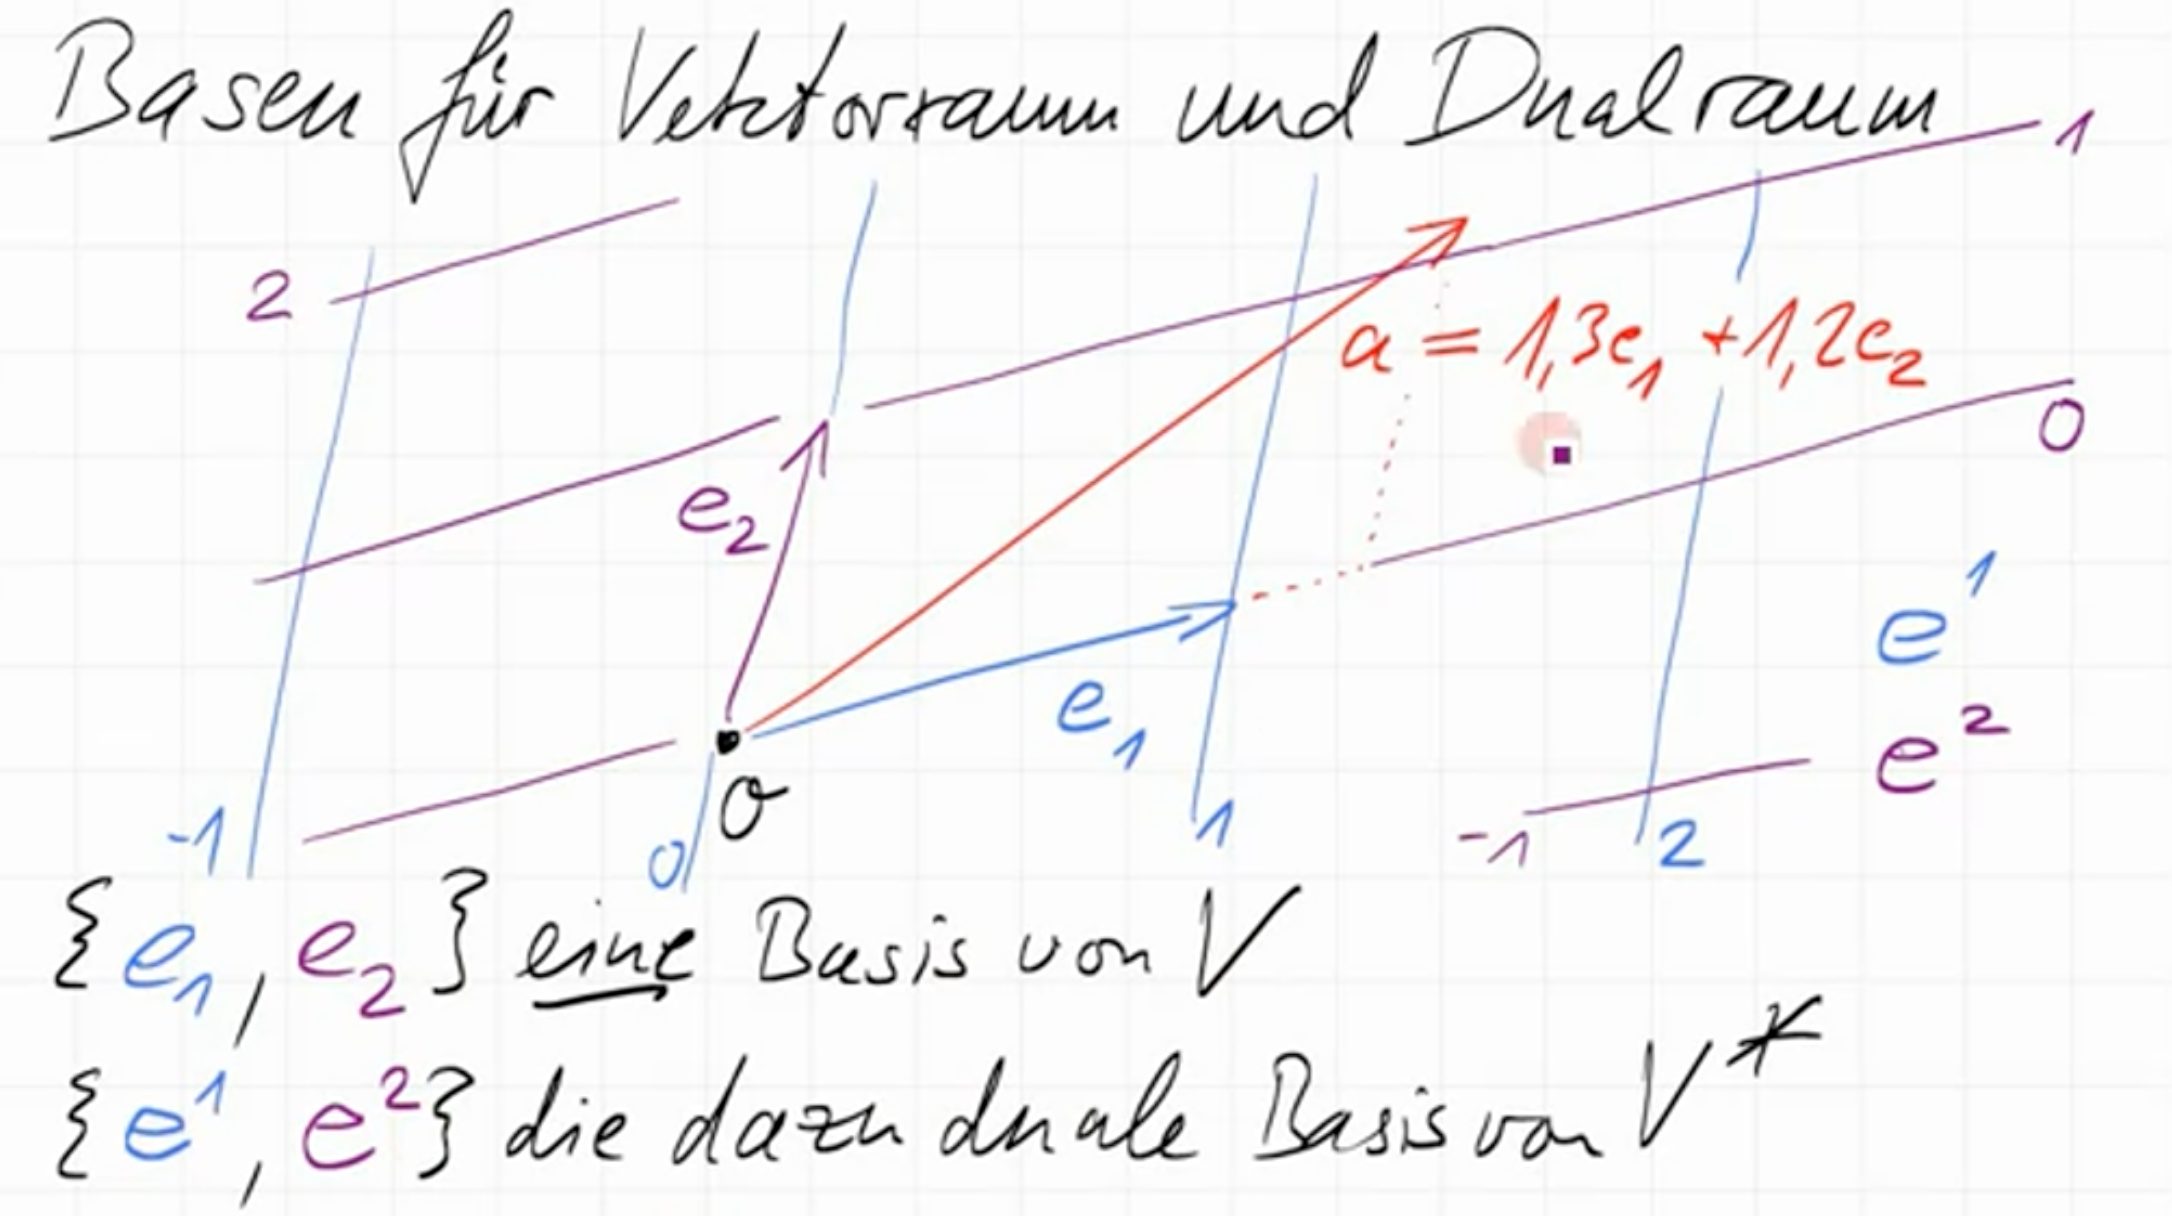 Basen für Vektorraum und Dualraum
1
2
a = 1,3e₁ + 1,2e₂
0
e₂
e¹
e₁
e²
O
-1
0
1
-1
2
{e₁, e₂} eine Basis von V
{e¹, e²} die dazu duale Basis von V*